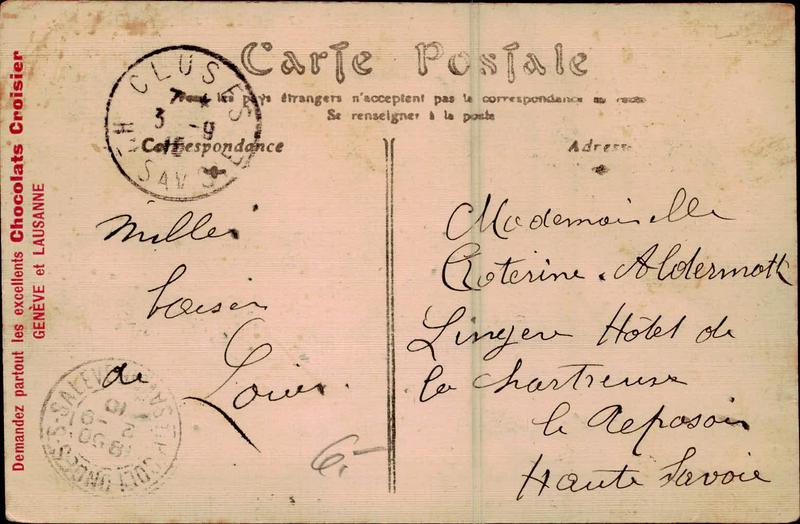 Carte Postale
Tous les pays étrangers n'acceptent pas la correspondance au recto
Se renseigner à la poste
Correspondance
Adresse
CLUSES
7 *
3 -9
15
HTE SAVOIE
Demandez partout les excellents Chocolats Croisier
GENÈVE et LAUSANNE
Mille
baiser
de Louis.
Mademoiselle
Caterine. Aldermatt
Lingere Hôtel de
la Chartreuse
le Reposoir
Haute Savoie
6.-